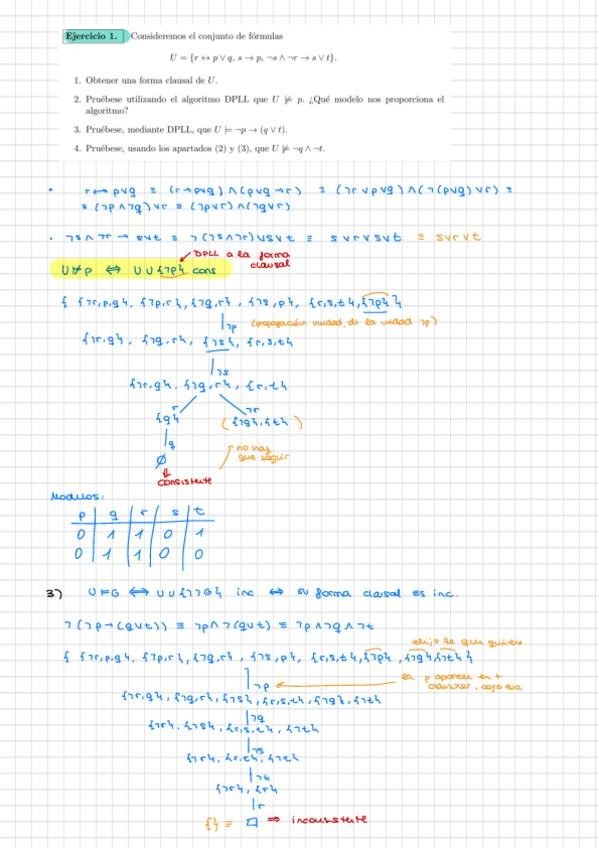 Ejercicio 1. Consideremos el conjunto de fórmulas
U = {r ↔ p ∨ q, s → p, ¬s ∧ ¬r → s ∨ t}.
1. Obtener una forma clausal de U.
2. Pruébese utilizando el algoritmo DPLL que U ⊭ p. ¿Qué modelo nos proporciona el
algoritmo?
3. Pruébese, mediante DPLL, que U ⊨ ¬p → (q ∨ t).
4. Pruébese, usando los apartados (2) y (3), que U ⊭ ¬q ∧ ¬t.
• r ↔ p∨q ≡ (r→p∨q) ∧ (p∨q→r) ≡ (¬r∨p∨q) ∧ (¬(p∨q)∨r) ≡
≡ (¬p∧¬q)∨r ≡ (¬p∨r)∧(¬q∨r)
• ¬s∧¬r → s∨t ≡ ¬(¬s∧¬r)∨s∨t ≡ s∨r∨s∨t ≡ s∨r∨t
DPLL a la forma
clausal
U⊭p ⇔ U∪{¬p} cons
{ {¬r,p,q}, {¬p,r}, {¬q,r}, {¬s,p}, {r,s,t}, {¬p} }
¬p (propagación unidad, de la unidad ¬p)
{¬r,q}, {¬q,r}, {¬s}, {r,s,t}
¬s
{¬r,q}, {¬q,r}, {r,t}
r ¬r
{q} ({¬q},{t})
q
no hay
que seguir
∅
consistente
Modelos:
p q r s t
0 1 1 0 1
0 1 1 0 0
3) U⊨G ⇔ U∪{¬G} inc ⇔ su forma clausal es inc.
¬(¬p→(q∨t)) ≡ ¬p∧¬(q∨t) ≡ ¬p∧¬q∧¬t
elijo la que quiera
{ {¬r,p,q}, {¬p,r}, {¬q,r}, {¬s,p}, {r,s,t}, {¬p}, {¬q}, {¬t} }
¬p
la p aparece en +
clausulas, cojo esa
{¬r,q}, {¬q,r}, {¬s}, {r,s,t}, {¬q}, {¬t}
¬q
{¬r}, {¬s}, {r,s,t}, {¬t}
¬s
{¬r}, {r,t}, {¬t}
¬t
{¬r}, {r}
r
{} ≡ □ ⇒ inconsistente